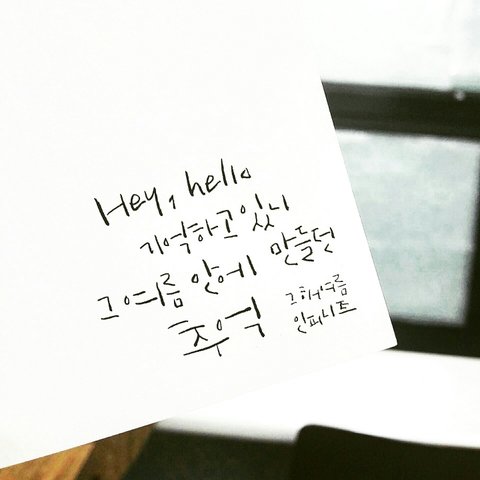 Hey, hello
기억하고 있니
그 여름 안에 만들던
추억
그 해 여름
인피니트